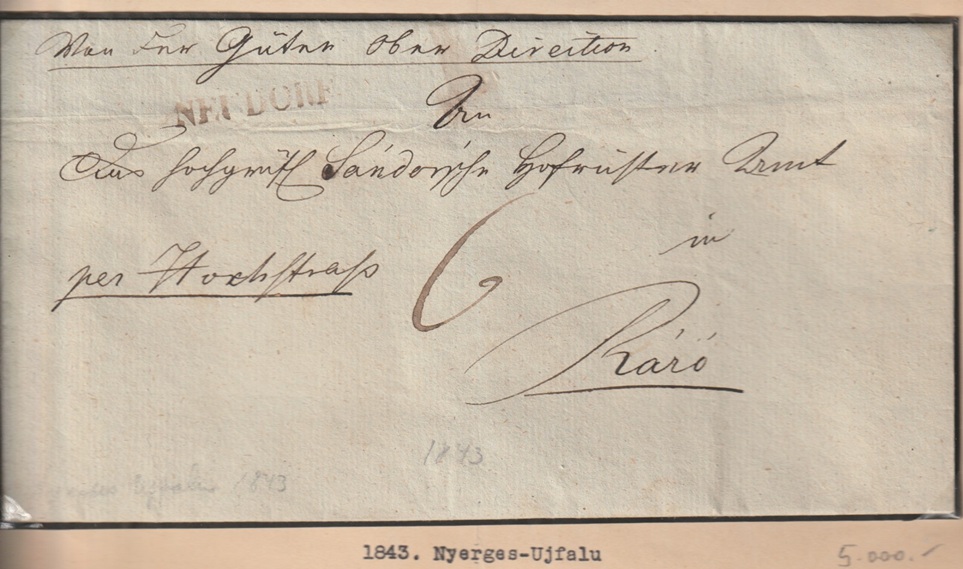 Von der Güter Ober Direction
NEUDORF
An
Das hochgräfl Sándorische Hofrichter Amt
in
per Hochstrass
6
Ráró
1843
Ujfalu 1843
1843. Nyerges-Ujfalu
5.000.-